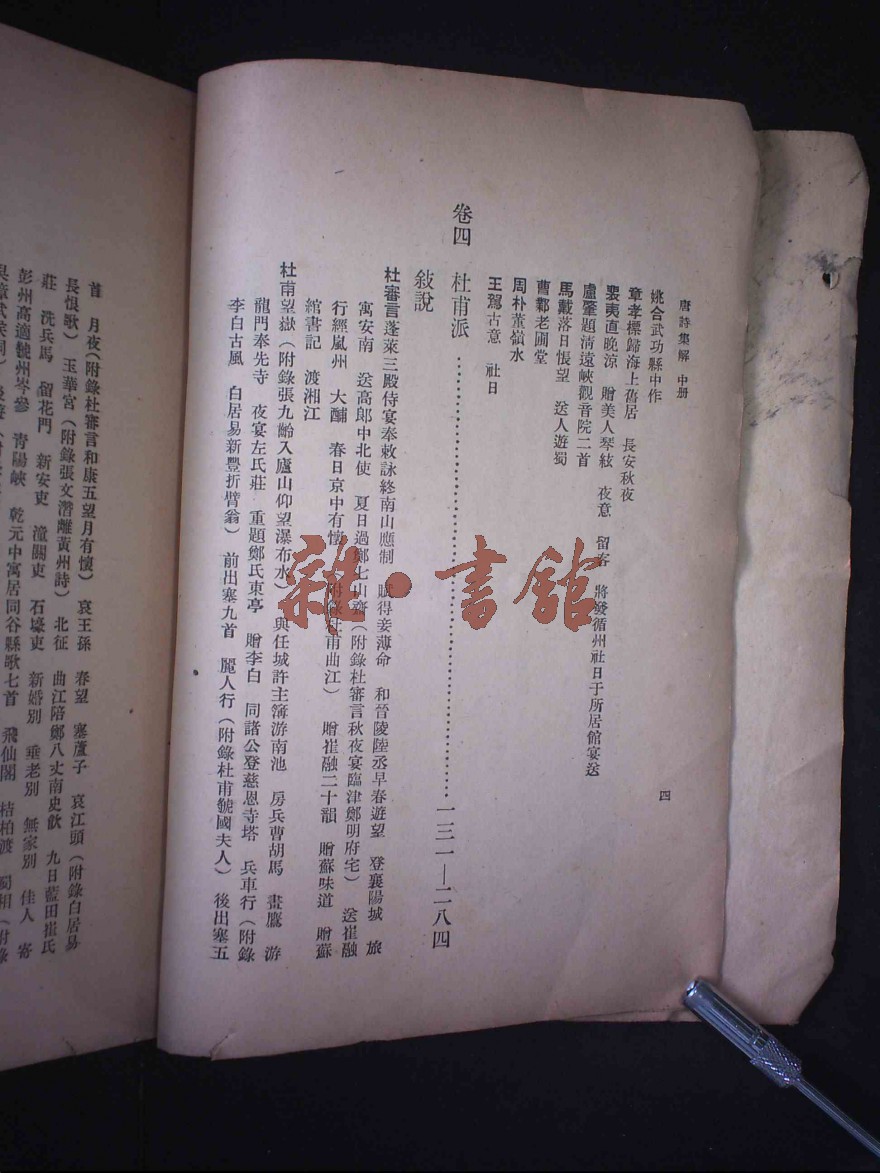 唐詩集解 中册
四
姚合武功縣中作
章孝標歸海上舊居 長安秋夜
裴夷直晚涼 贈美人琴絃 夜意 留客 將發循州社日于所居館宴送
盧肇題清遠峽觀音院二首
馬戴落日悵望 送人遊蜀
曹鄴老圃堂
周朴董嶺水
王駕古意 社日
卷四 杜甫派 一三一—二八四
敍說
杜審言蓬萊三殿侍宴奉敕詠終南山應制 賦得妾薄命 和晉陵陸丞早春遊望 登襄陽城 旅
寓安南 送高郎中北使 夏日過鄭七山齋(附錄杜審言秋夜宴臨津鄭明府宅) 送崔融
行經嵐州 大酺 春日京中有懷 (附錄杜甫曲江) 贈崔融二十韻 贈蘇味道 贈蘇
綰書記 渡湘江
杜甫望嶽(附錄張九齡入廬山仰望瀑布水) 與任城許主簿游南池 房兵曹胡馬 畫鷹 游
龍門奉先寺 夜宴左氏莊 重題鄭氏東亭 贈李白 同諸公登慈恩寺塔 兵車行(附錄
李白古風 白居易新豐折臂翁) 前出塞九首 麗人行(附錄杜甫虢國夫人) 後出塞五
首 月夜(附錄杜審言和康五望月有懷) 哀王孫 春望 塞蘆子 哀江頭(附錄白居易
長恨歌) 玉華宮(附錄張文潛離黃州詩) 北征 曲江陪鄭八丈南史飲 九日藍田崔氏
莊 洗兵馬 留花門 新安吏 潼關吏 石壕吏 新婚別 垂老別 無家別 佳人 寄
彭州高適虢州岑參 青陽峽 乾元中寓居同谷縣歌七首 飛仙閣 桔柏渡 蜀相(附錄
雜·書館